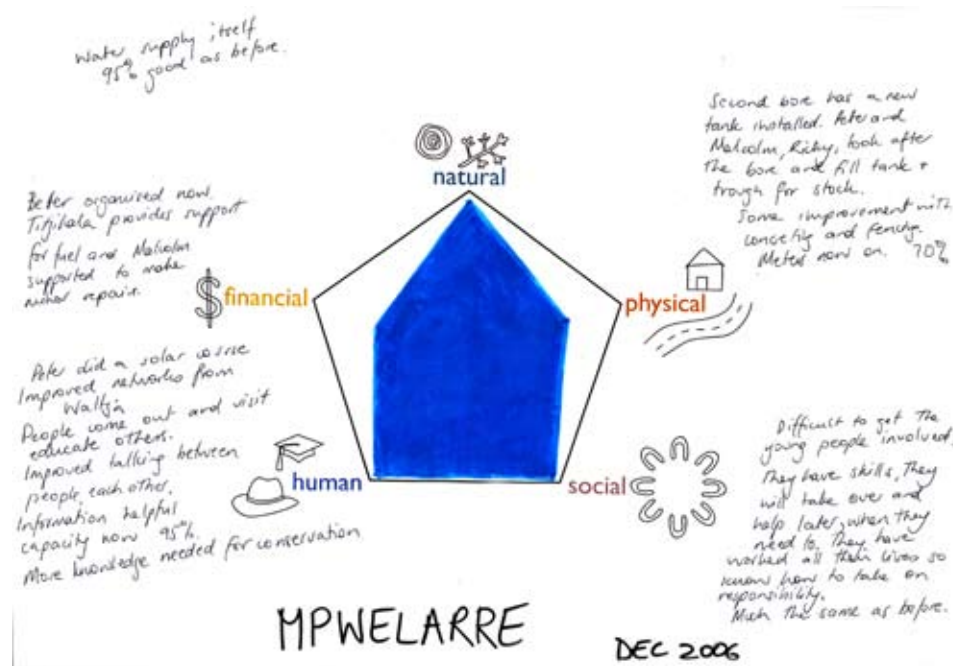 Water supply itself
95% good as before.
Second bore has a new
tank installed. Peter and
Malcolm, Richy, look after
the bore and fill tank +
trough for stock.
Some improvement with
and fencing.
Meters now on. 70%
natural
Better organised now.
Titjikala provides support
for fuel and Malcolm
supported to make
minor repairs.
$
financial
physical
Peter did a solar course
Improved networks from
People come out and visit
educate others.
Improved talking between
people, each other.
Information helpful
capacity now 95%.
More knowledge needed for conservation
human
social
Difficult to get the
young people involved,
They have skills, they
will take over and
help later, when they
need to. They have
worked all their lives so
know how to take on
responsibility.
Much the same as before.
MPWELARRE
DEC 2006